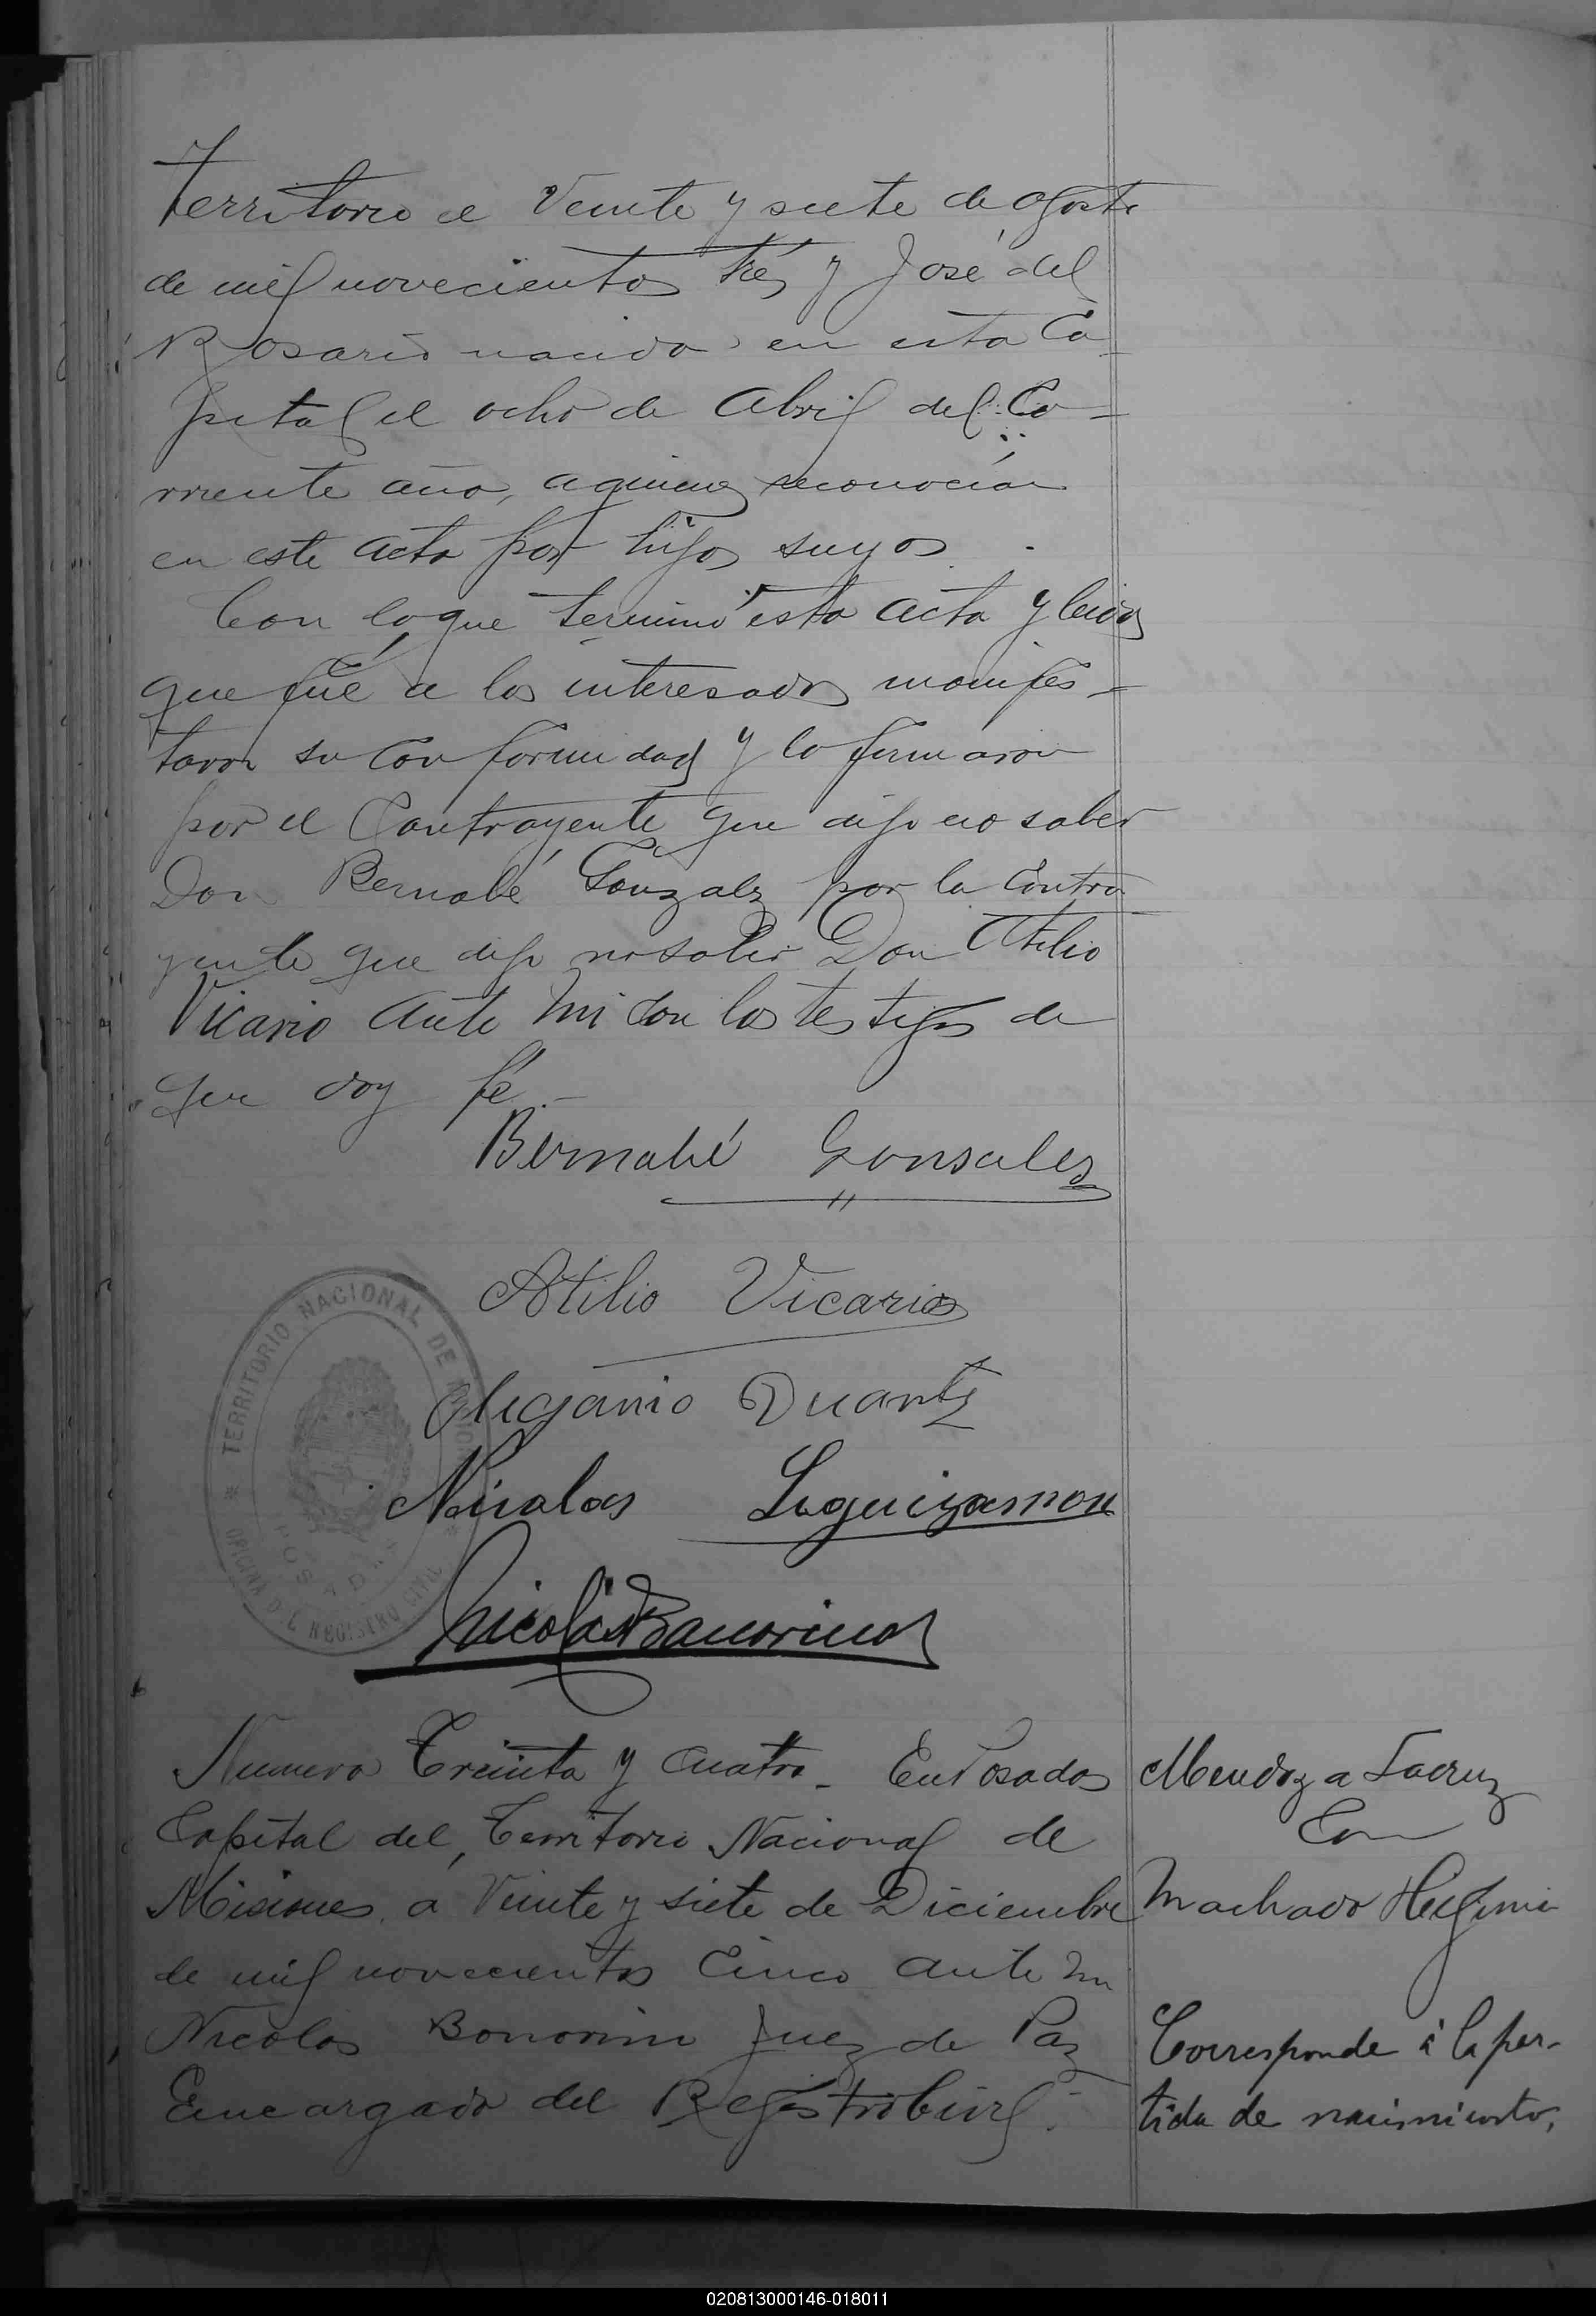 Territorio el Veinte y siete de agosto
de mil novecientos tres y José del
Rosario nacido en esta Ca-
pital el ocho de Abril del Co-
rriente año, a quienes reconocian
en este acto por hijos suyos.
Con lo que terminó esta acta y leida
que fué a los interesados manifes-
taron su conformidad y la firmaron
por el Contrayente que dijo no saber
Don Bernabé Gonzalez por la Contra
yente que dijo no saber Don Atilio
Vicario ante mi con los testigos de
que doy fé.-
Bernabé Gonsales
Atilio Vicario
Duarte
Nicolas Leguizamon
Nicolás Bonorino
TERRITORIO NACIONAL DE MISIONES
POSADAS
OFICINA DEL REGISTRO CIVIL
Numero Treinta y cuatro - En Posadas
Capital del Territorio Nacional de
Misiones a Veinte y siete de Diciembre
de mil novecientos Cinco ante mi
Nicolas Bonorino Juez de Paz
Encargado del Registro Civil.
Mendoza Lacruz
Con
Machado Higinia
Corresponde á la par-
tida de nacimiento,
020813000146-018011